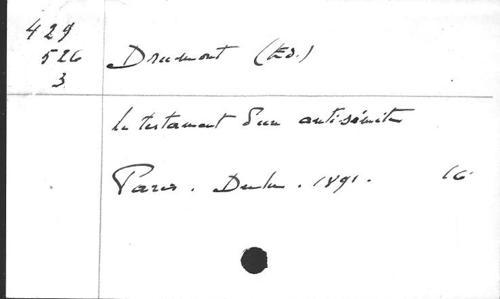 429
526
3
Drumont (Ed.)
Le testament d'un antisémite
Paris. Dentu. 1891. 16